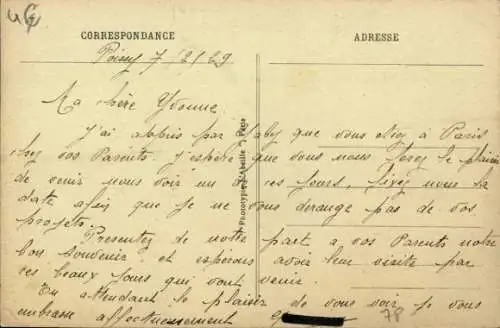 CORRESPONDANCE
ADRESSE
Poissy 7/2/29
Ma chère Yvonne
J'ai appris par Gaby que vous êtiez à Paris
chez vos Parents. J'espère que vous nous ferez le plaisir
de venir nous voir un de ces jours, fixez nous la
date afin que je ne vous dérange pas de vos
projets.
Présentez de notre part a vos Parents notre
bon souvenir et espérons avoir leur visite par
ces beaux jours qui vont venir.
En attendant le plaisir de vous voir je vous
embrasse affectueusement
Phototypie l'Abeille, Paris
78